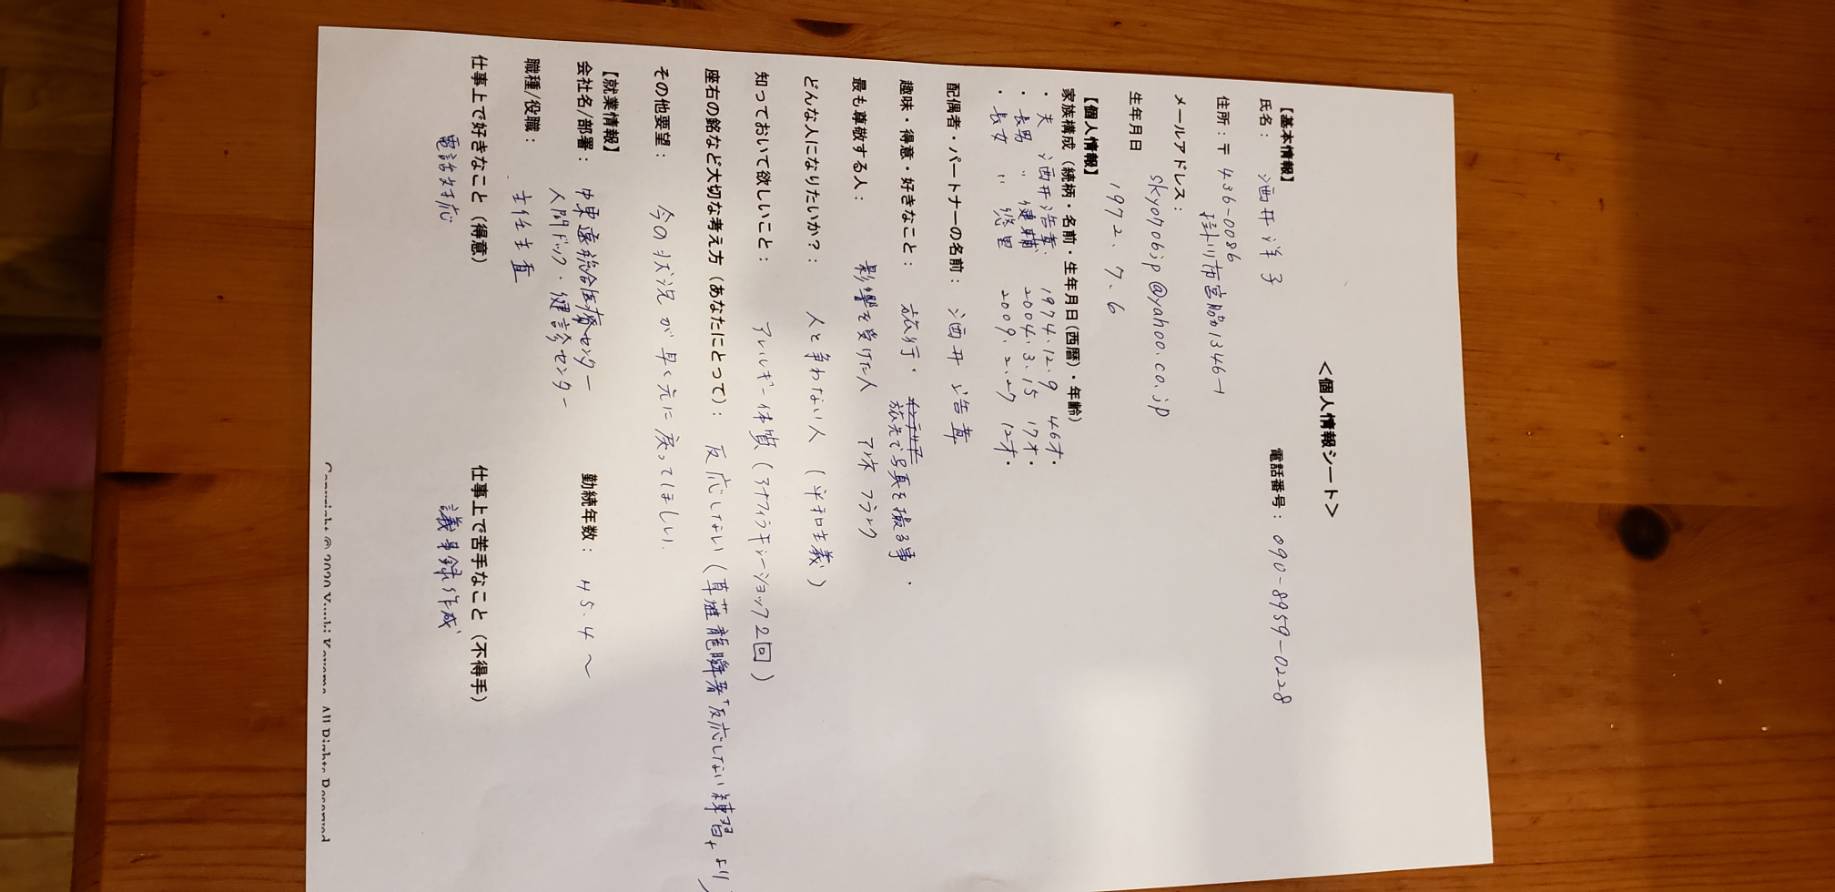 ＜個人情報シート＞
【基本情報】
氏名： 酒井洋子 電話番号： 090-8959-0228
住所：〒 436-0086
掛川市宮脇1346-1
メールアドレス：
skyonobjp@yahoo.co.jp
生年月日
1972.7.6
【個人情報】
家族構成（続柄・名前・生年月日（西暦）・年齢）
・夫 酒井浩章 1974.12.9 46才.
・長男 〃 健輔 2004.3.15 17才.
・長女 〃 悠里 2009.2.27 12才.
配偶者・パートナーの名前： 酒井浩章
趣味・得意・好きなこと： 旅行.
旅先で写真を撮る事.
最も尊敬する人： 影響を受けた人 アンネ フランク
どんな人になりたいか？： 人と争わない人（平和主義）
知っておいて欲しいこと： アレルギー体質（アナフィラキシーショック2回）
座右の銘など大切な考え方（あなたにとって）： 反応しない（草薙龍瞬著「反応しない練習」より）
その他要望： 今の状況が早く元に戻ってほしい.
【就業情報】
会社名/部署： 中東遠総合医療センター 勤続年数： H5.4～
人間ドック・健診センター
職種/役職： 主任主査
仕事上で好きなこと（得意） 仕事上で苦手なこと（不得手）
電話対応 議事録作成
All Rights Reserved